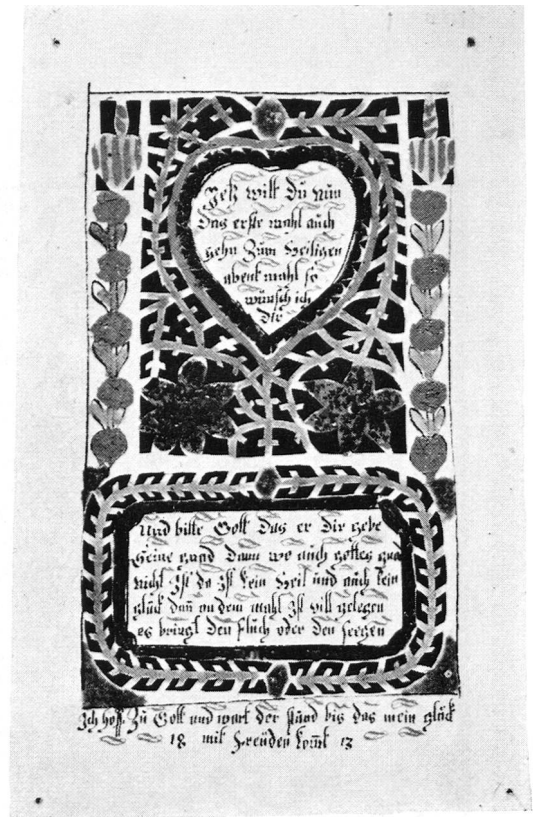 Jetz wilt Du nun
Das erste mahl auch
gehn Zum Heiligen
abentmahl so
wünsch ich
Dir
Und bitte Gott Das er Dir gebe
Seine gnad Dann wo nicht gottes gna
nicht Ist da Ist kein Heil und auch kein
glück dan an dem mahl Ist vill gelegen
es bringt Den fluch oder Den seegen
Ich hoff Zu Gott und wart der stund bis das mein glück
18 mit freüden komt 13